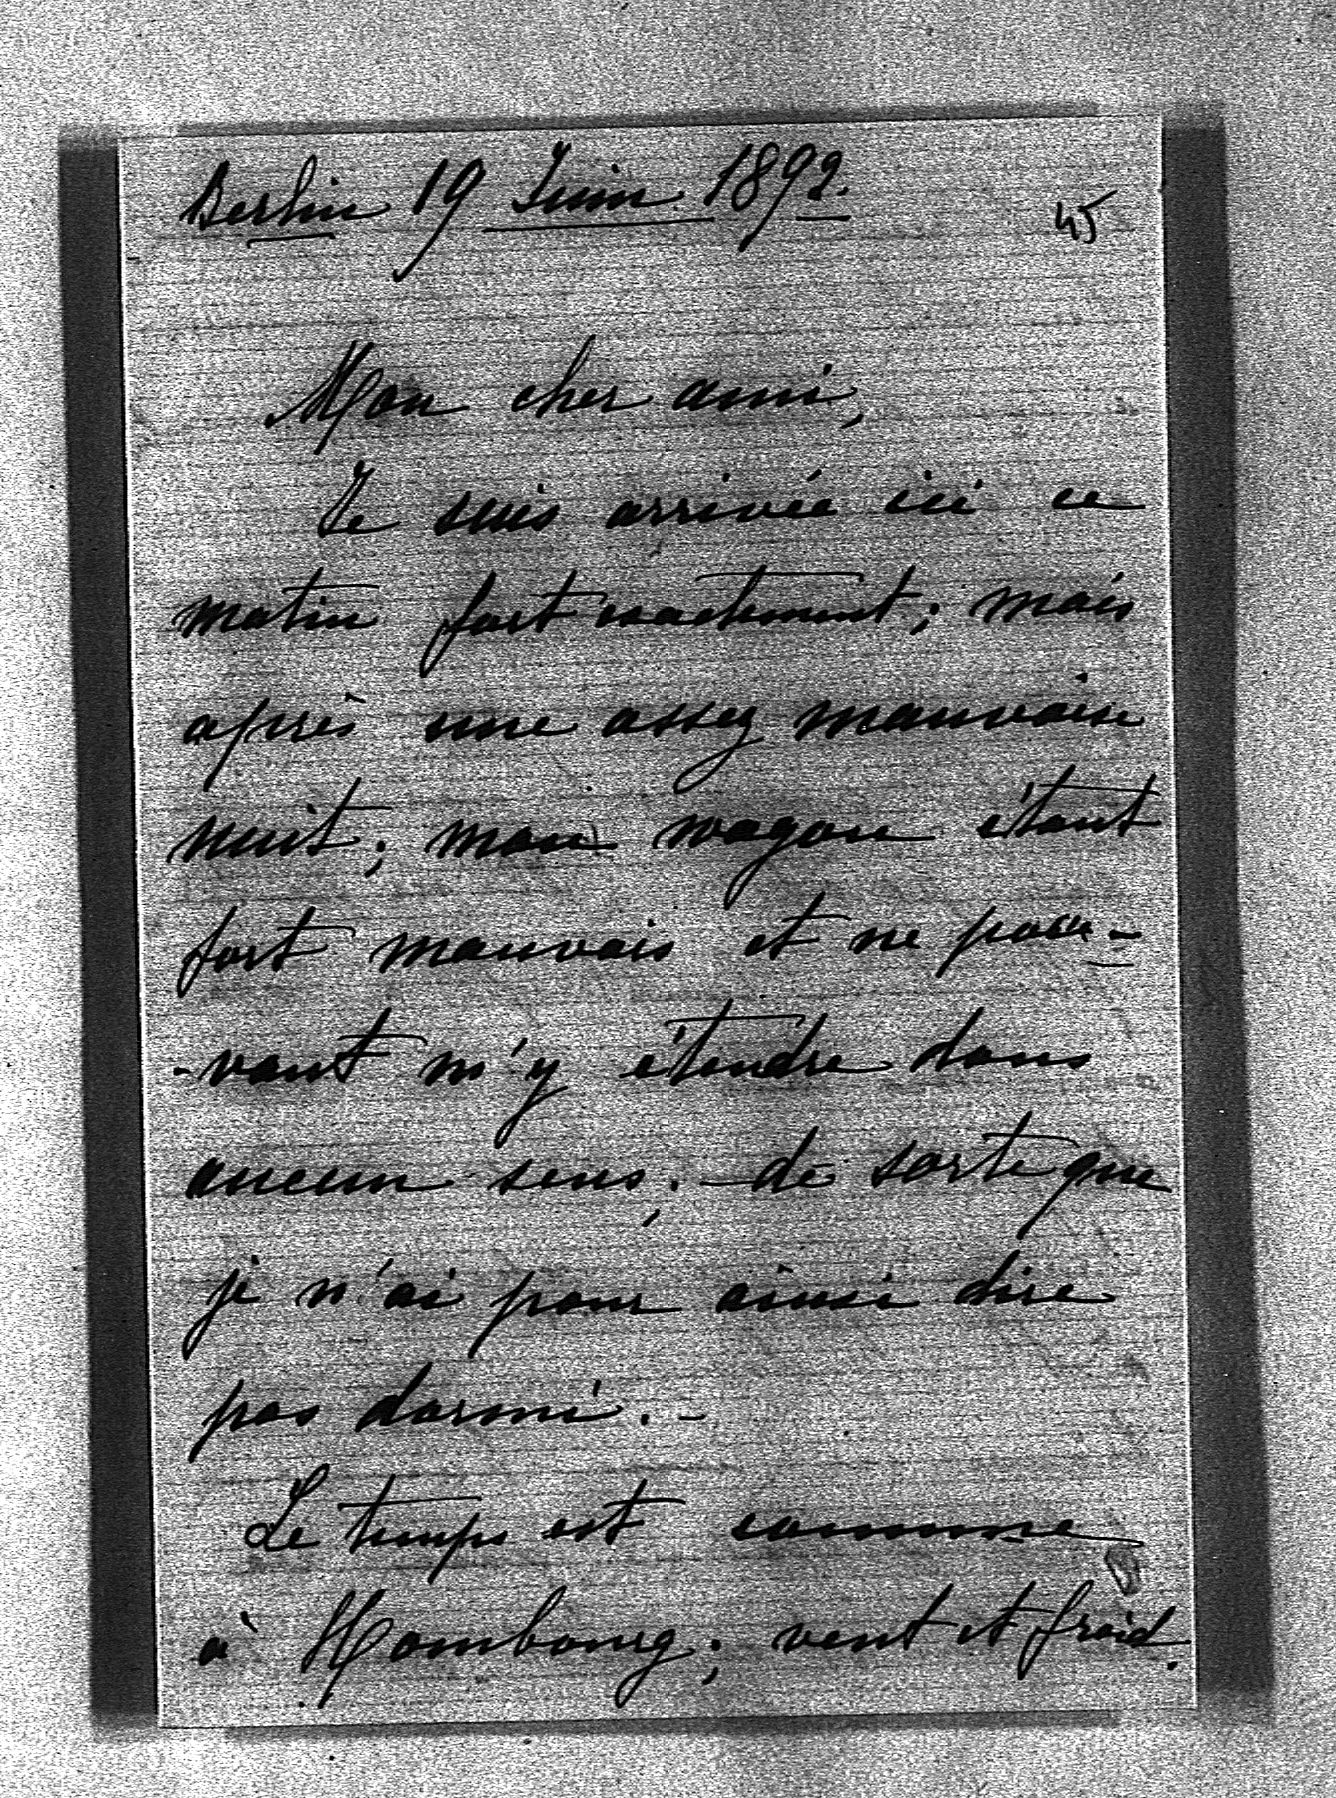 Berlin 19 Juin 1892.
45
Mon cher ami,
Je suis arrivée ici ce
matin fort exactement; mais
après une assez mauvaise
nuit; mon wagon étant
fort mauvais et ne pou-
-vant m'y étendre dans
aucun sens; de sorte que
je n'ai pour ainsi dire
pas dormi. -
Le temps est comme
à Hombourg; vent et froid.